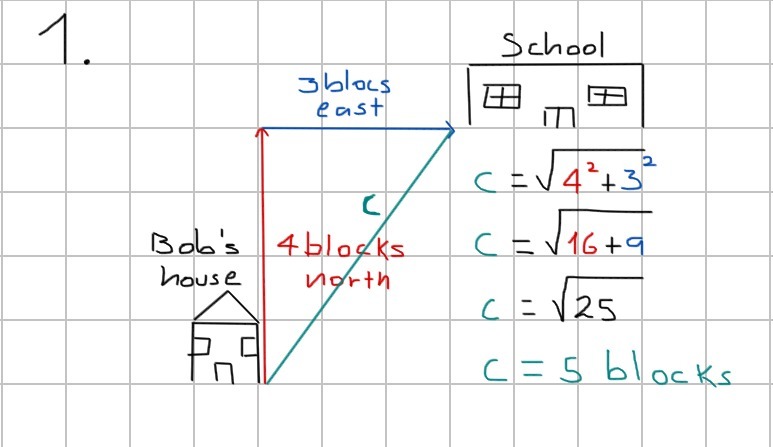 1.
School
3 blocs
east
C
Bob's
house
4 blocks
north
C = √4²+3²
C = √16+9
C = √25
C = 5 blocks